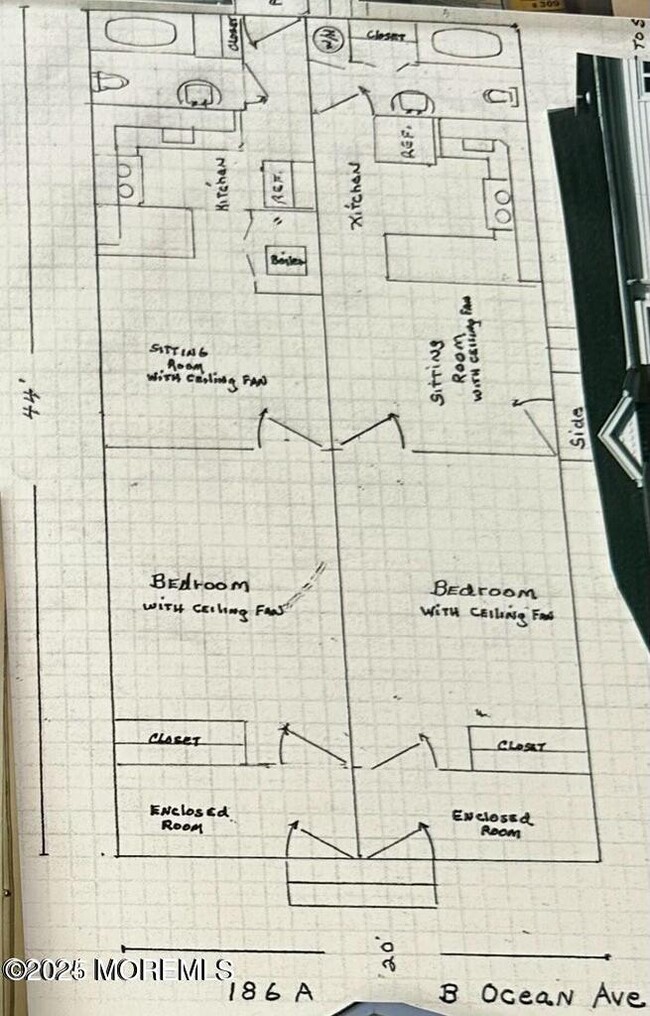 CLOSET
W/H
CLOSET
TO S
REF.
REF.
Kitchen
Kitchen
Boiler
SITTING
ROOM
WITH CEILING FAN
SITTING
ROOM
WITH CEILING FAN
44'
Side
BEdroom
WITH CEILING FAN
BEdroom
WITH CEILING FAN
CLOSET
CLOSET
ENCLOSEd
ROOM
ENCLOSEd
ROOM
20'
©2025 MOREMLS
186 A
B OCEAN AVE